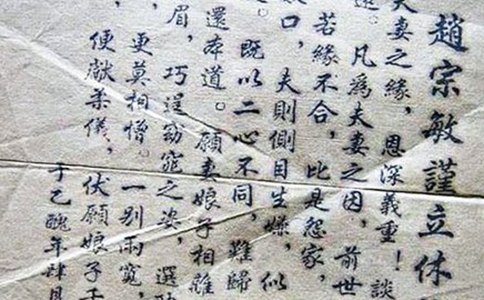 趙宗敏謹立休
夫妻之緣，恩深義重！談
。凡爲夫妻之因，前世
若緣不合，比是怨家，
口，夫則側目生嫌，似
。既以二心不同，難歸
還本道。願妻娘子相離
眉，巧逞窈窕之姿，選
，更莫相憎。一別兩寬，
，便獻柔儀，伏願娘子千
于乙醜年肆月